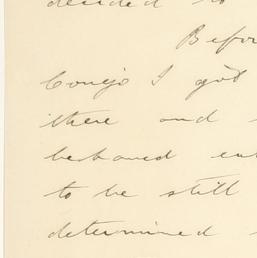 decided to
Befor
Conejo I got
there and
behaved
to be still
determined